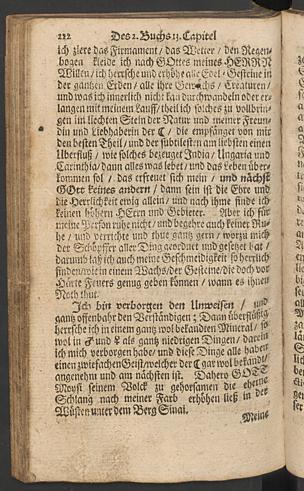 212 Des 2. Buchs 13. Capitel
ich ziere das Firmament / das Wetter / den Regen-
bogen kleide ich nach GOttes meines HERRN
Willen / ich herrsche und erhöhe alle Edel-Gesteine in
der gantzen Erden / alle ihre Gewächs / Creaturen /
und was ich innerlich nicht kan durchwandeln oder er-
langen mit meinem Lauff / theil ich solches zu vollbrin-
gen im liechten Stein der Natur und meiner Freun-
din und Liebhaberin der ☾ / die empfänget von mir
den besten Theil / und der subtilesten am liebsten einen
Uberfluß / wie solches bezeuget India / Ungaria und
Carinthia / dann alles was lebet / und das Leben über-
kommen sol / das erfreuet sich mein / und nächst
GOtt keines andern / dann sein ist die Ehre und
die Herrlichkeit ewig allein / und nach ihme finde ich
keinen höhern HErrn und Gebieter. Aber ich für
meine Person ruhe nicht / und begehre auch keiner Ru-
he / und verrichte und thue gantz gern / worzu mich
der Schöpffer aller Ding geordnet und gesetzet hat /
darumb laß ich auch meine Geschmeidigkeit so herrlich
finden / wie in einem Wachs / der Gesteine / die doch vor
Härte Feuers genug geben können / wann es ihnen
Noth thut.
Ich bin verborgen den Unweisen / und
gantz offenbahr den Verständigen ; Dann überflüssig
herrsche ich in einem gantz wol bekandten Mineral / so
wol in ♂ und ♀ als gantz niedrigen Dingen / darein
ich mich verborgen habe / und diese Dinge alle haben
einen zwiefachen Geist / welcher der ☾ gar wol bekandt /
angenehm und am nächsten ist. Dahero GOTT
Moysi seinem Volck zu gehorsamen die eherne
Schlang nach meiner Farb erhöhen ließ in der
Wüsten unter dem Berg Sinai.
Meine